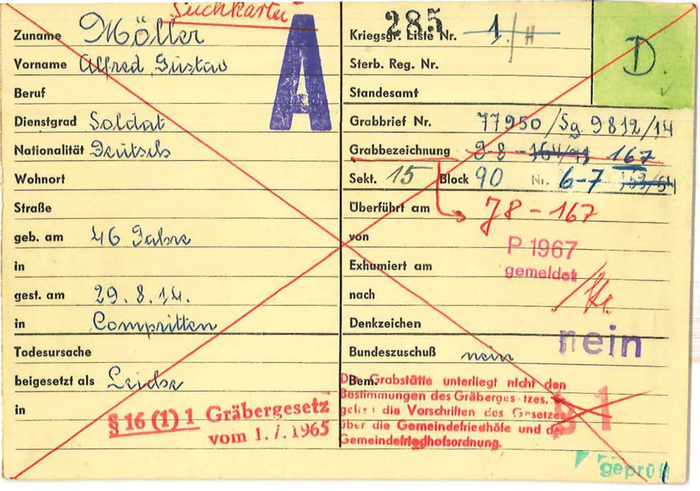 Suchkarte
285
Zuname Möller
A
Kriegsgr. Liste Nr. 1/H
D.
Vorname Alfred, Gustav
Sterb. Reg. Nr.
Beruf
Standesamt
Dienstgrad Soldat
Grabbrief Nr. 77950/Sg 9812/14
Nationalität Deutsch
Grabbezeichnung 167
Wohnort
Sekt. 15 Block 90 Nr. 6-7
Straße
Überführt am J8-167
geb. am 46 Jahre
von
P 1967
gemeldet
in
Exhumiert am
gest. am 29.8.14.
nach
in Compritten
Denkzeichen
Todesursache
Bundeszuschuß nein
nein
beigesetzt als Leiche
Bem.
in
§ 16 (1) 1 Gräbergesetz
vom 1.7.1965
Grabstätte unterliegt nicht den
Bestimmungen des
die Vorschriften des Gesetzes
über die Gemeindefriedhöfe und
Gemeindefriedhofsordnung.
§ 1
geprüft